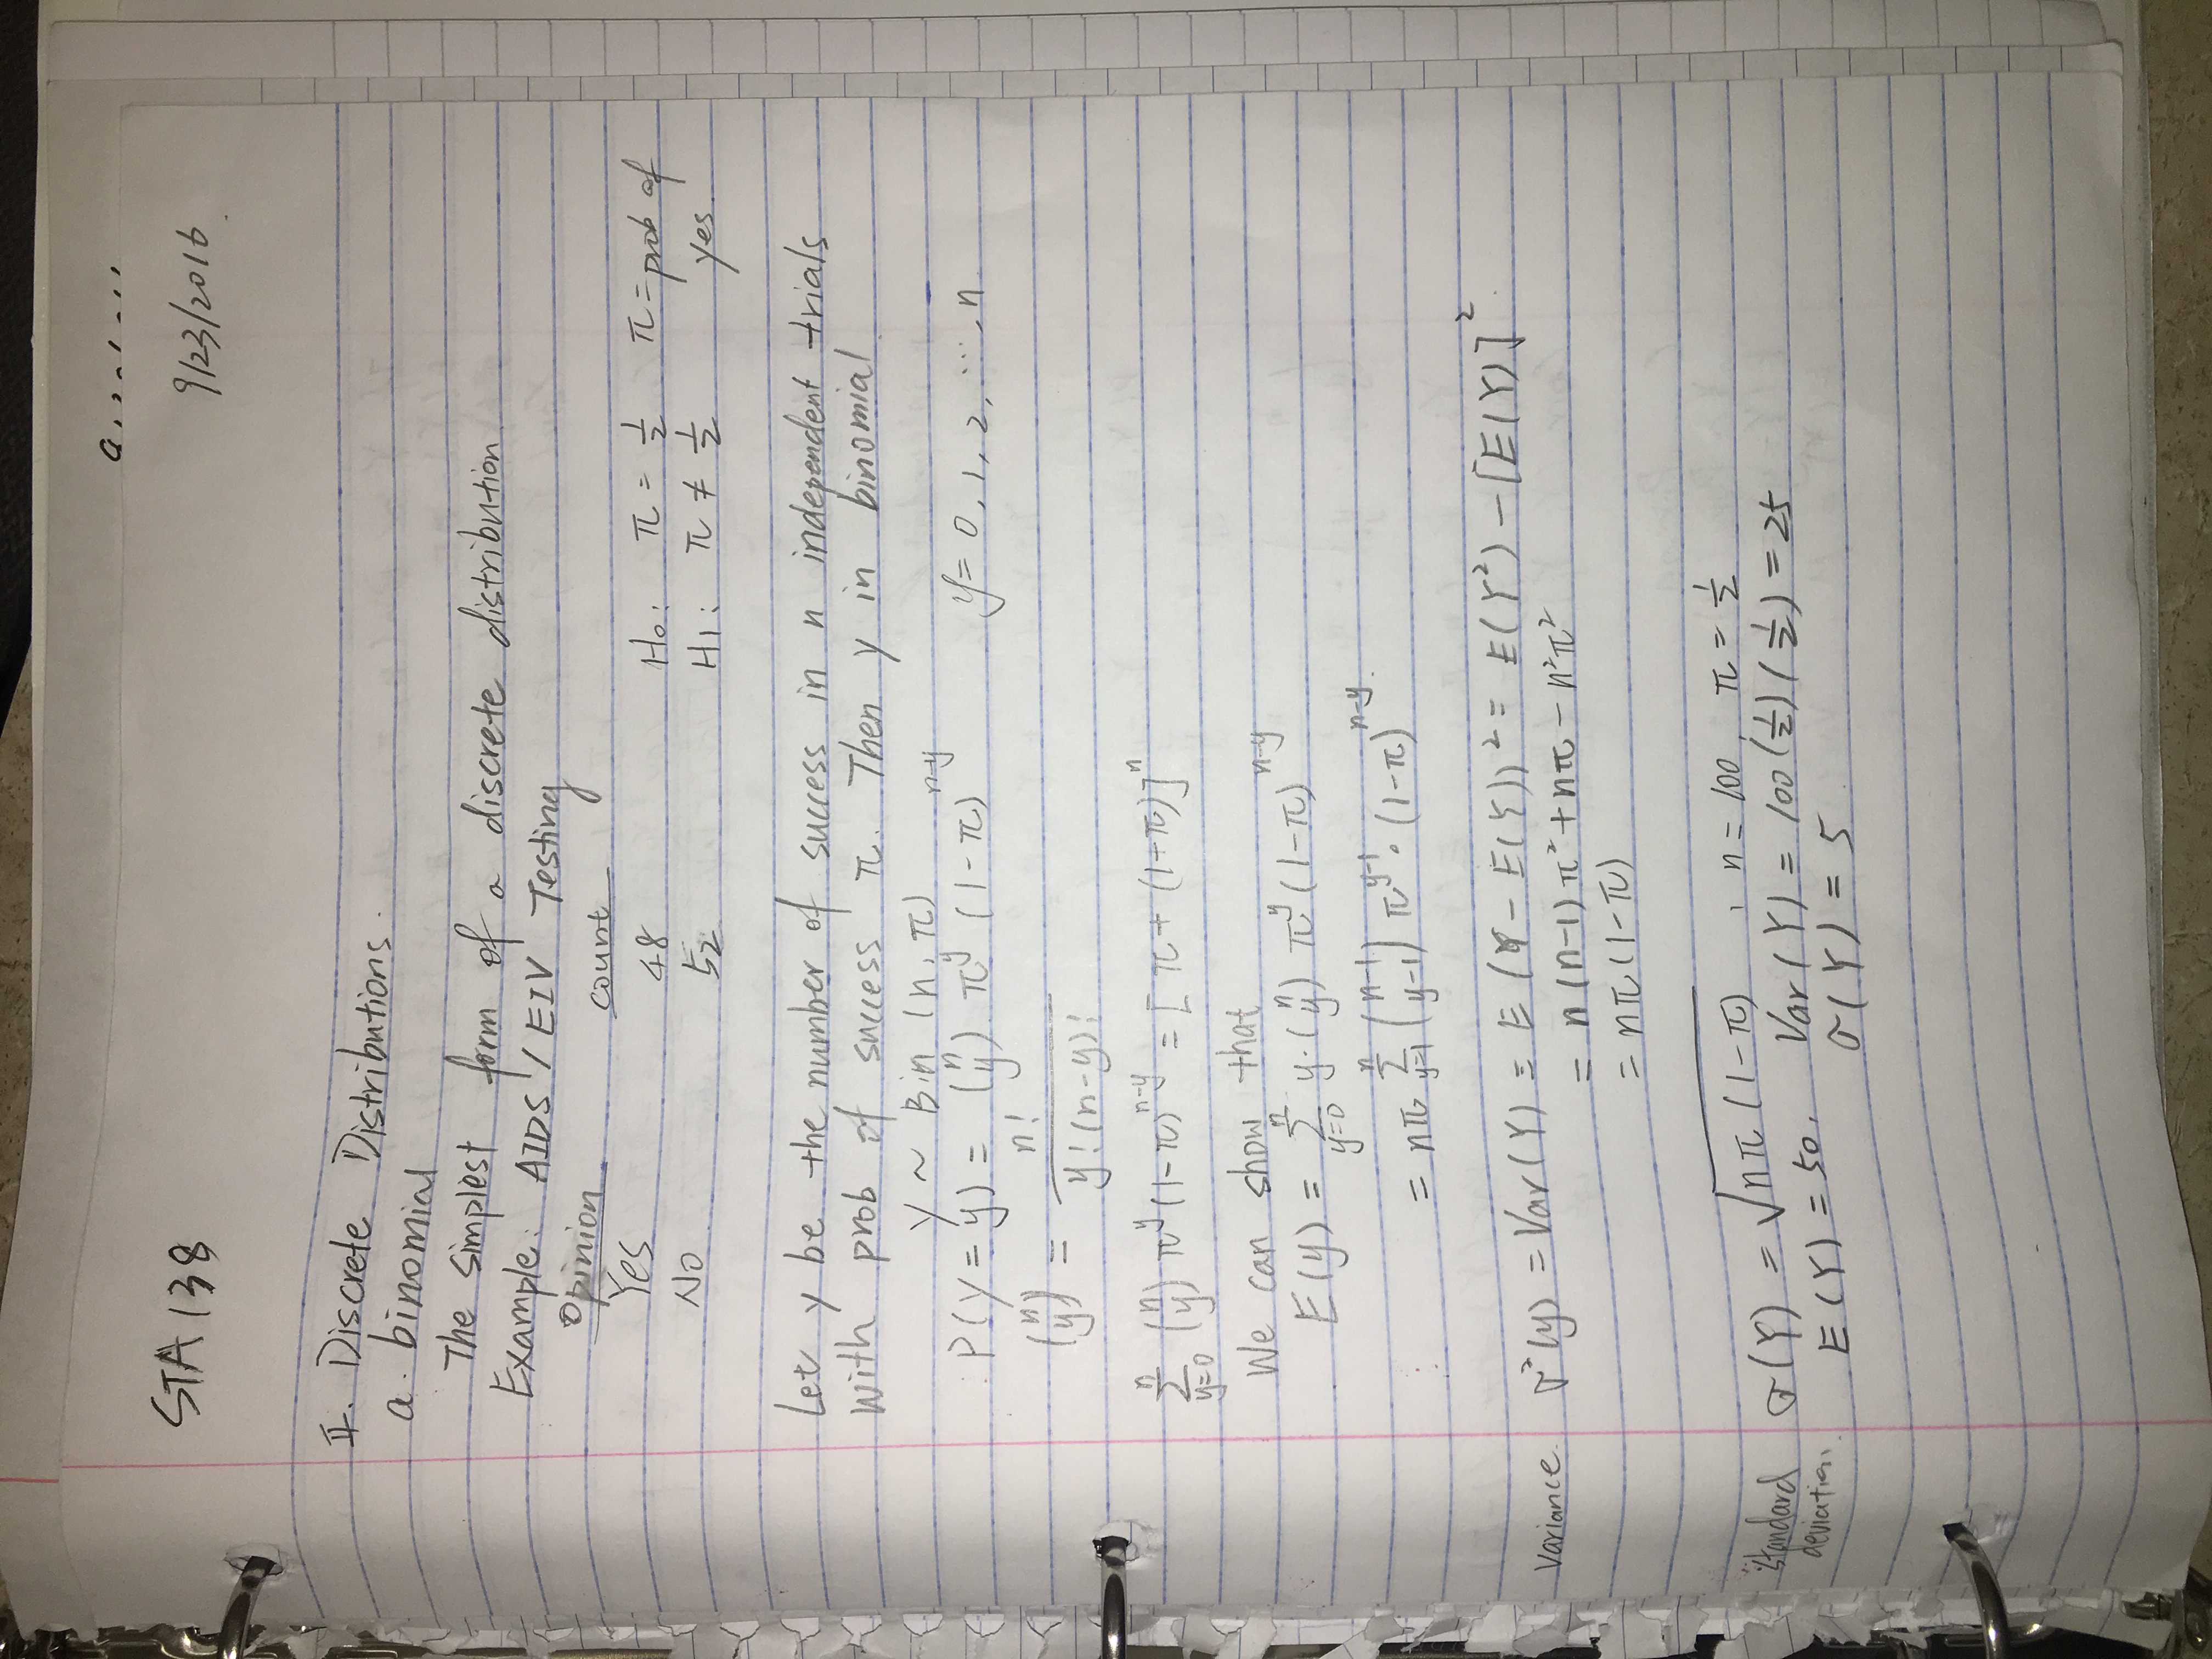 STA 138
9/23/2016
II. Discrete Distributions.
a. binomial
The simplest form of a discrete distribution.
Example: AIDS / EIV Testing
Opinion count
Yes 48 H₀: π = 1/2 π = prob of
No 52 H1: π ≠ 1/2 yes.
Let y be the number of success in n independent trials
with prob of success π. Then y in binomial
Y ~ Bin (n, π)
P(Y = y) = (n y) π^y (1-π)^(n-y) y = 0, 1, 2, ..., n.
(n y) = n! / y!(n-y)!
Σ_{y=0}^{n} (n y) π^y (1-π)^(n-y) = [π + (1+π)]^n
We can show that
E(y) = Σ_{y=0}^{n} y·(n y) π^y (1-π)^(n-y)
= nπ Σ_{y=1}^{n} (n-1 y-1) π^(y-1) · (1-π)^(n-y).
Variance. σ²(y) = Var(Y) = E(Y - E(Y))² = E(Y²) - [E(Y)]²
= n(n-1)π² + nπ - n²π²
= nπ(1-π)
Standard deviation. σ(Y) = √nπ(1-π) , n = 100, π = 1/2
E(Y) = 50, Var(Y) = 100(1/2)(1/2) = 25
σ(Y) = 5.